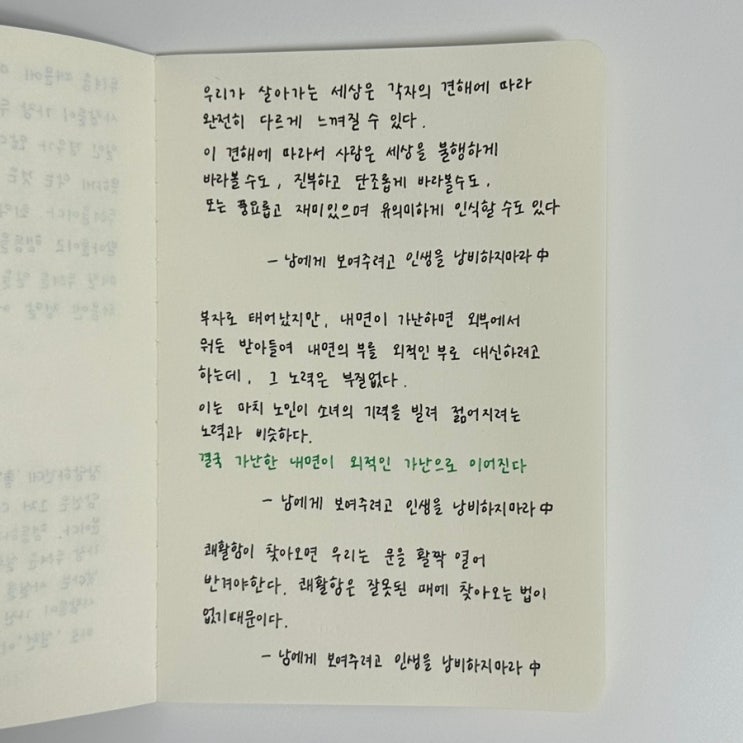 우리가 살아가는 세상은 각자의 견해에 따라
완전히 다르게 느껴질 수 있다.
이 견해에 따라서 사람은 세상을 불행하게
바라볼 수도, 진부하고 단조롭게 바라볼수도,
또는 풍요롭고 재미있으며 유의미하게 인식할 수도 있다
- 남에게 보여주려고 인생을 낭비하지마라 中
부자로 태어났지만, 내면이 가난하면 외부에서
뭐든 받아들여 내면의 부를 외적인 부로 대신하려고
하는데, 그 노력은 부질없다.
이는 마치 노인이 소녀의 기력을 빌려 젊어지려는
노력과 비슷하다.
결국 가난한 내면이 외적인 가난으로 이어진다
- 남에게 보여주려고 인생을 낭비하지마라 中
쾌활함이 찾아오면 우리는 문을 활짝 열어
반겨야한다. 쾌활함은 잘못된 때에 찾아오는 법이
없기때문이다.
- 남에게 보여주려고 인생을 낭비하지마라 中